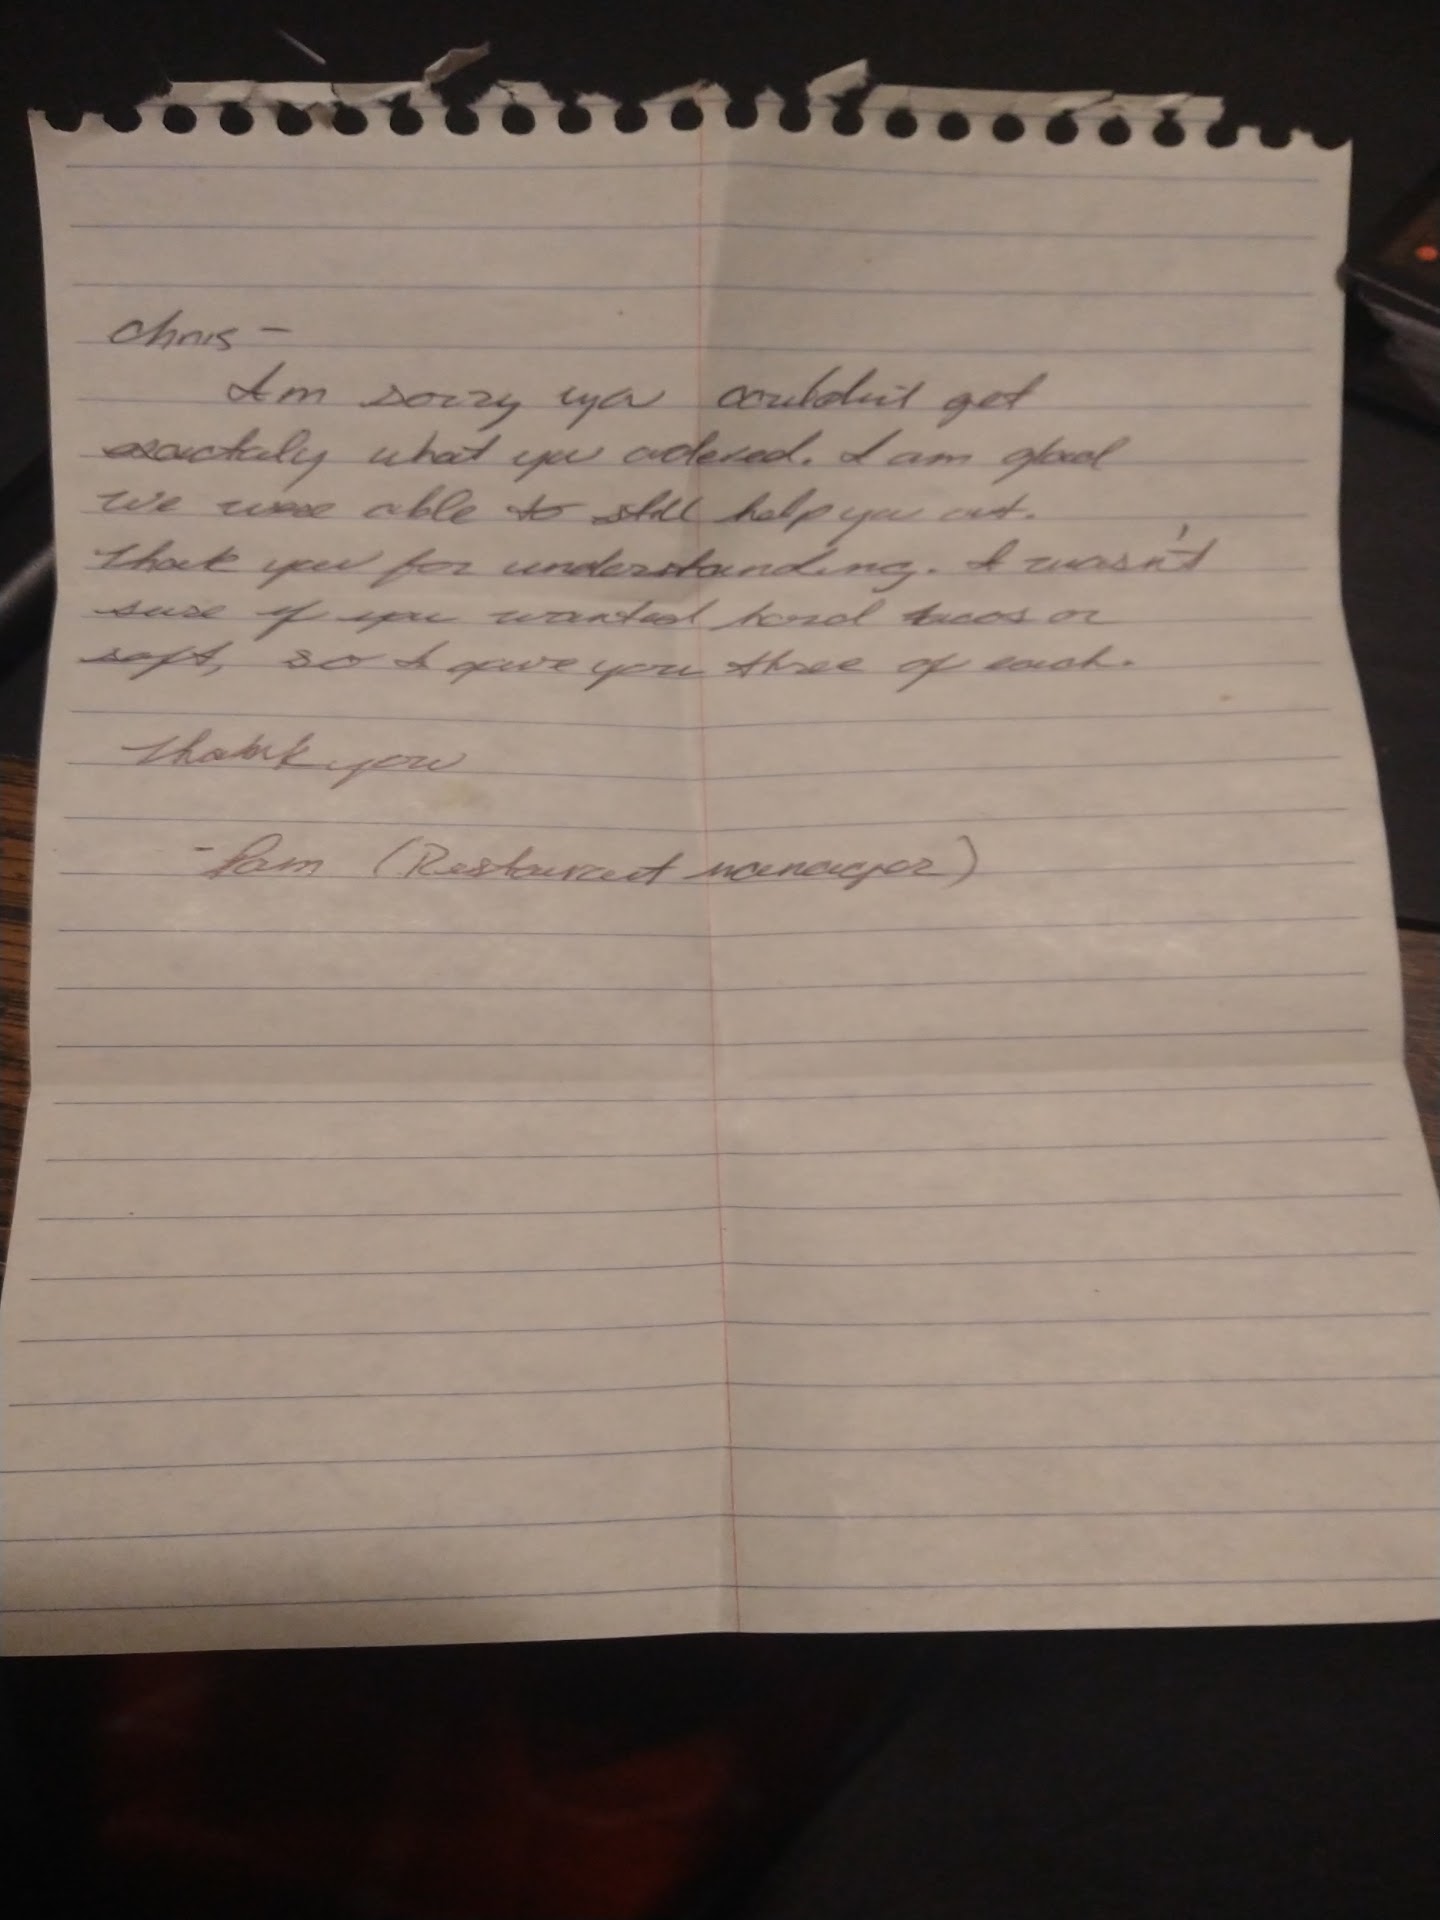 Chris -
I am sorry you couldn't get
exactaly what you ordered. I am glad
we were able to still help you out.
Thank you for understanding. I wasn't
sure if you wanted hard tacos or
soft, so I gave you three of each.
Thank you
- Pam (Restaurant manager)